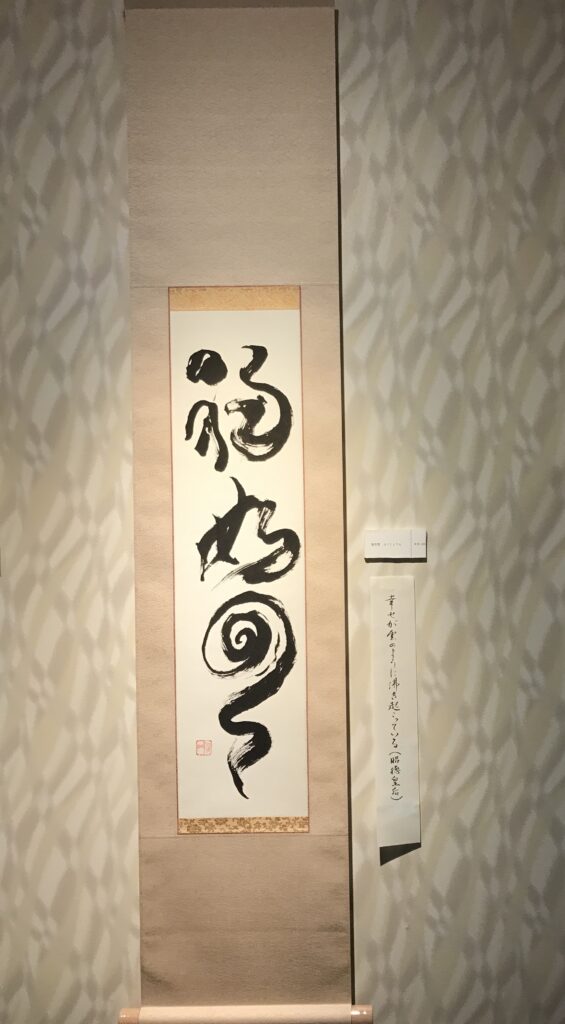 福如雲
幸せが雲のように沸き起こっている(昭徳皇后)